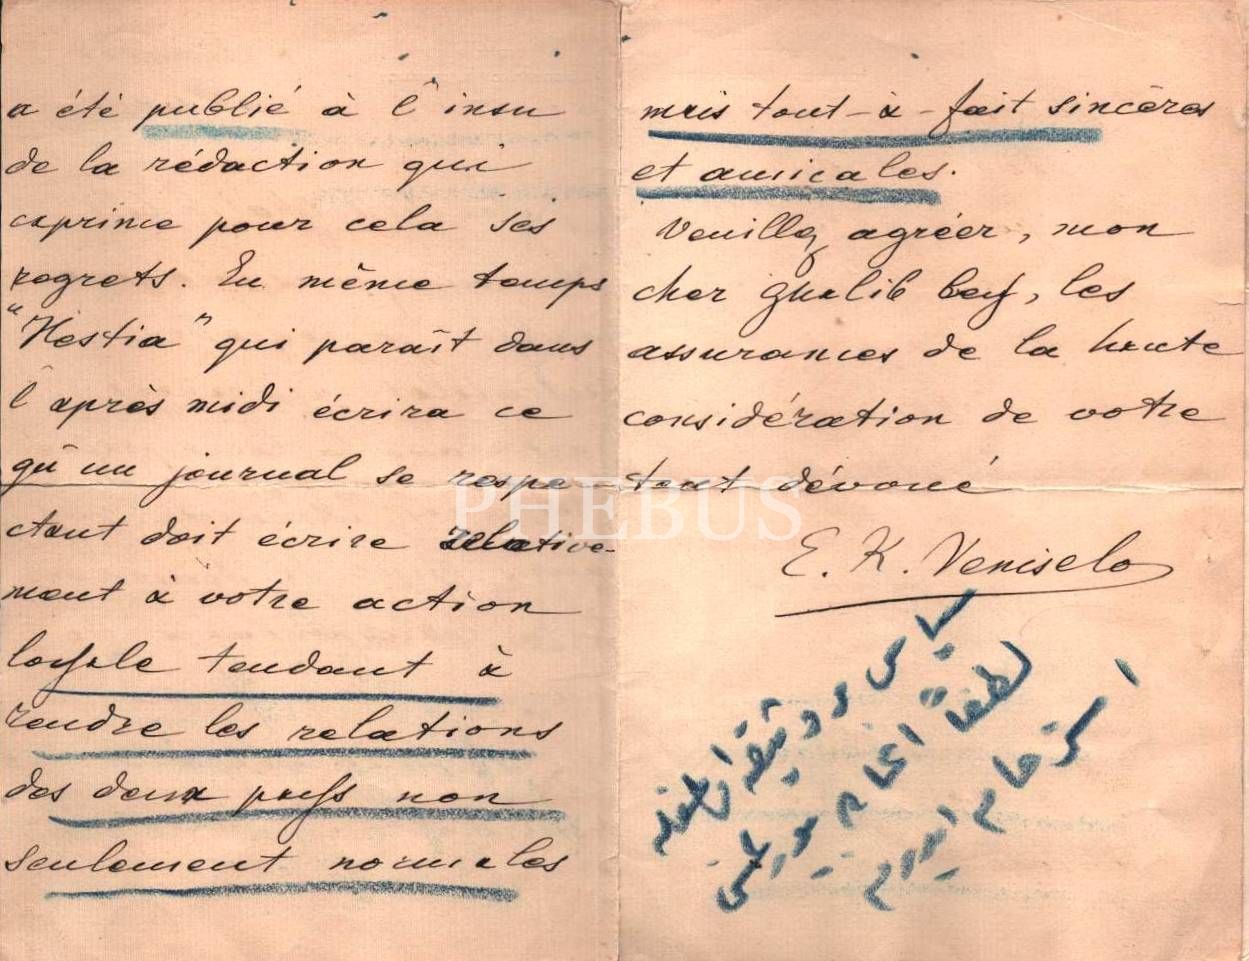 a été publié à l'insu
de la rédaction qui
exprime pour cela ses
regrets. En même temps
"Hestia" qui paraît dans
l'après midi écrira ce
qu'un journal se respe-
ctant doit écrire relative-
ment à votre action
loyale tendant à
rendre les relations
des deux pays non
seulement normales
mais tout-à-fait sincères
et amicales.
Veuillez agréer, mon
cher Ghalib bey, les
assurances de la haute
considération de votre
tout dévoué
E. K. Veniselos
PHEBUS